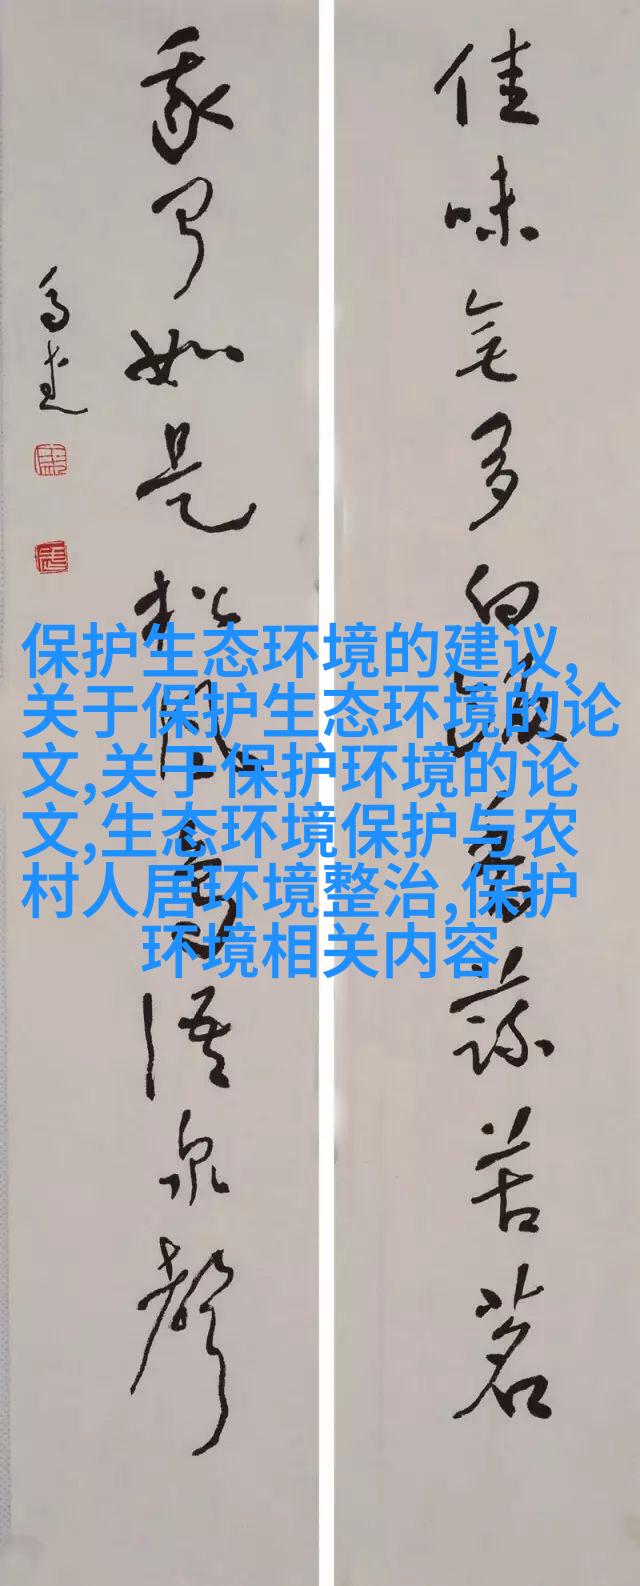 佳味無多白飯香蔬苦茗
我聞如是松風鳥語泉聲
保护生态环境的建议,
关于保护生态环境的论
文,关于保护环境的论
文,生态环境保护与农
村人居环境整治,保护
环境相关内容